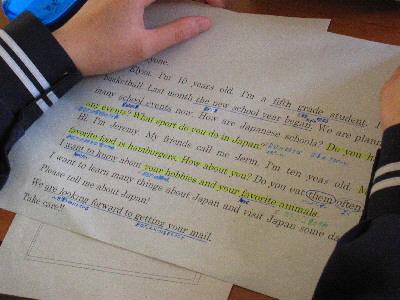 yone.
Elysa. I'm 10 years old. I'm a fifth grade student. I
basketball. Last month the new school year began. We are plann
many school events now. How are Japanese schools? Do you h
any events? What sport do you do in Japan?
Hi, I'm Jeremy. My friends call me Jerm. I'm ten years old. M
favorite food is hamburgers. How about you? Do you eat them often
I want to know about your hobbies and your favorite animals.
I want to learn many things about Japan and visit Japan some da
Please tell me about Japan!
We are looking forward to getting your mail.
Take care!!